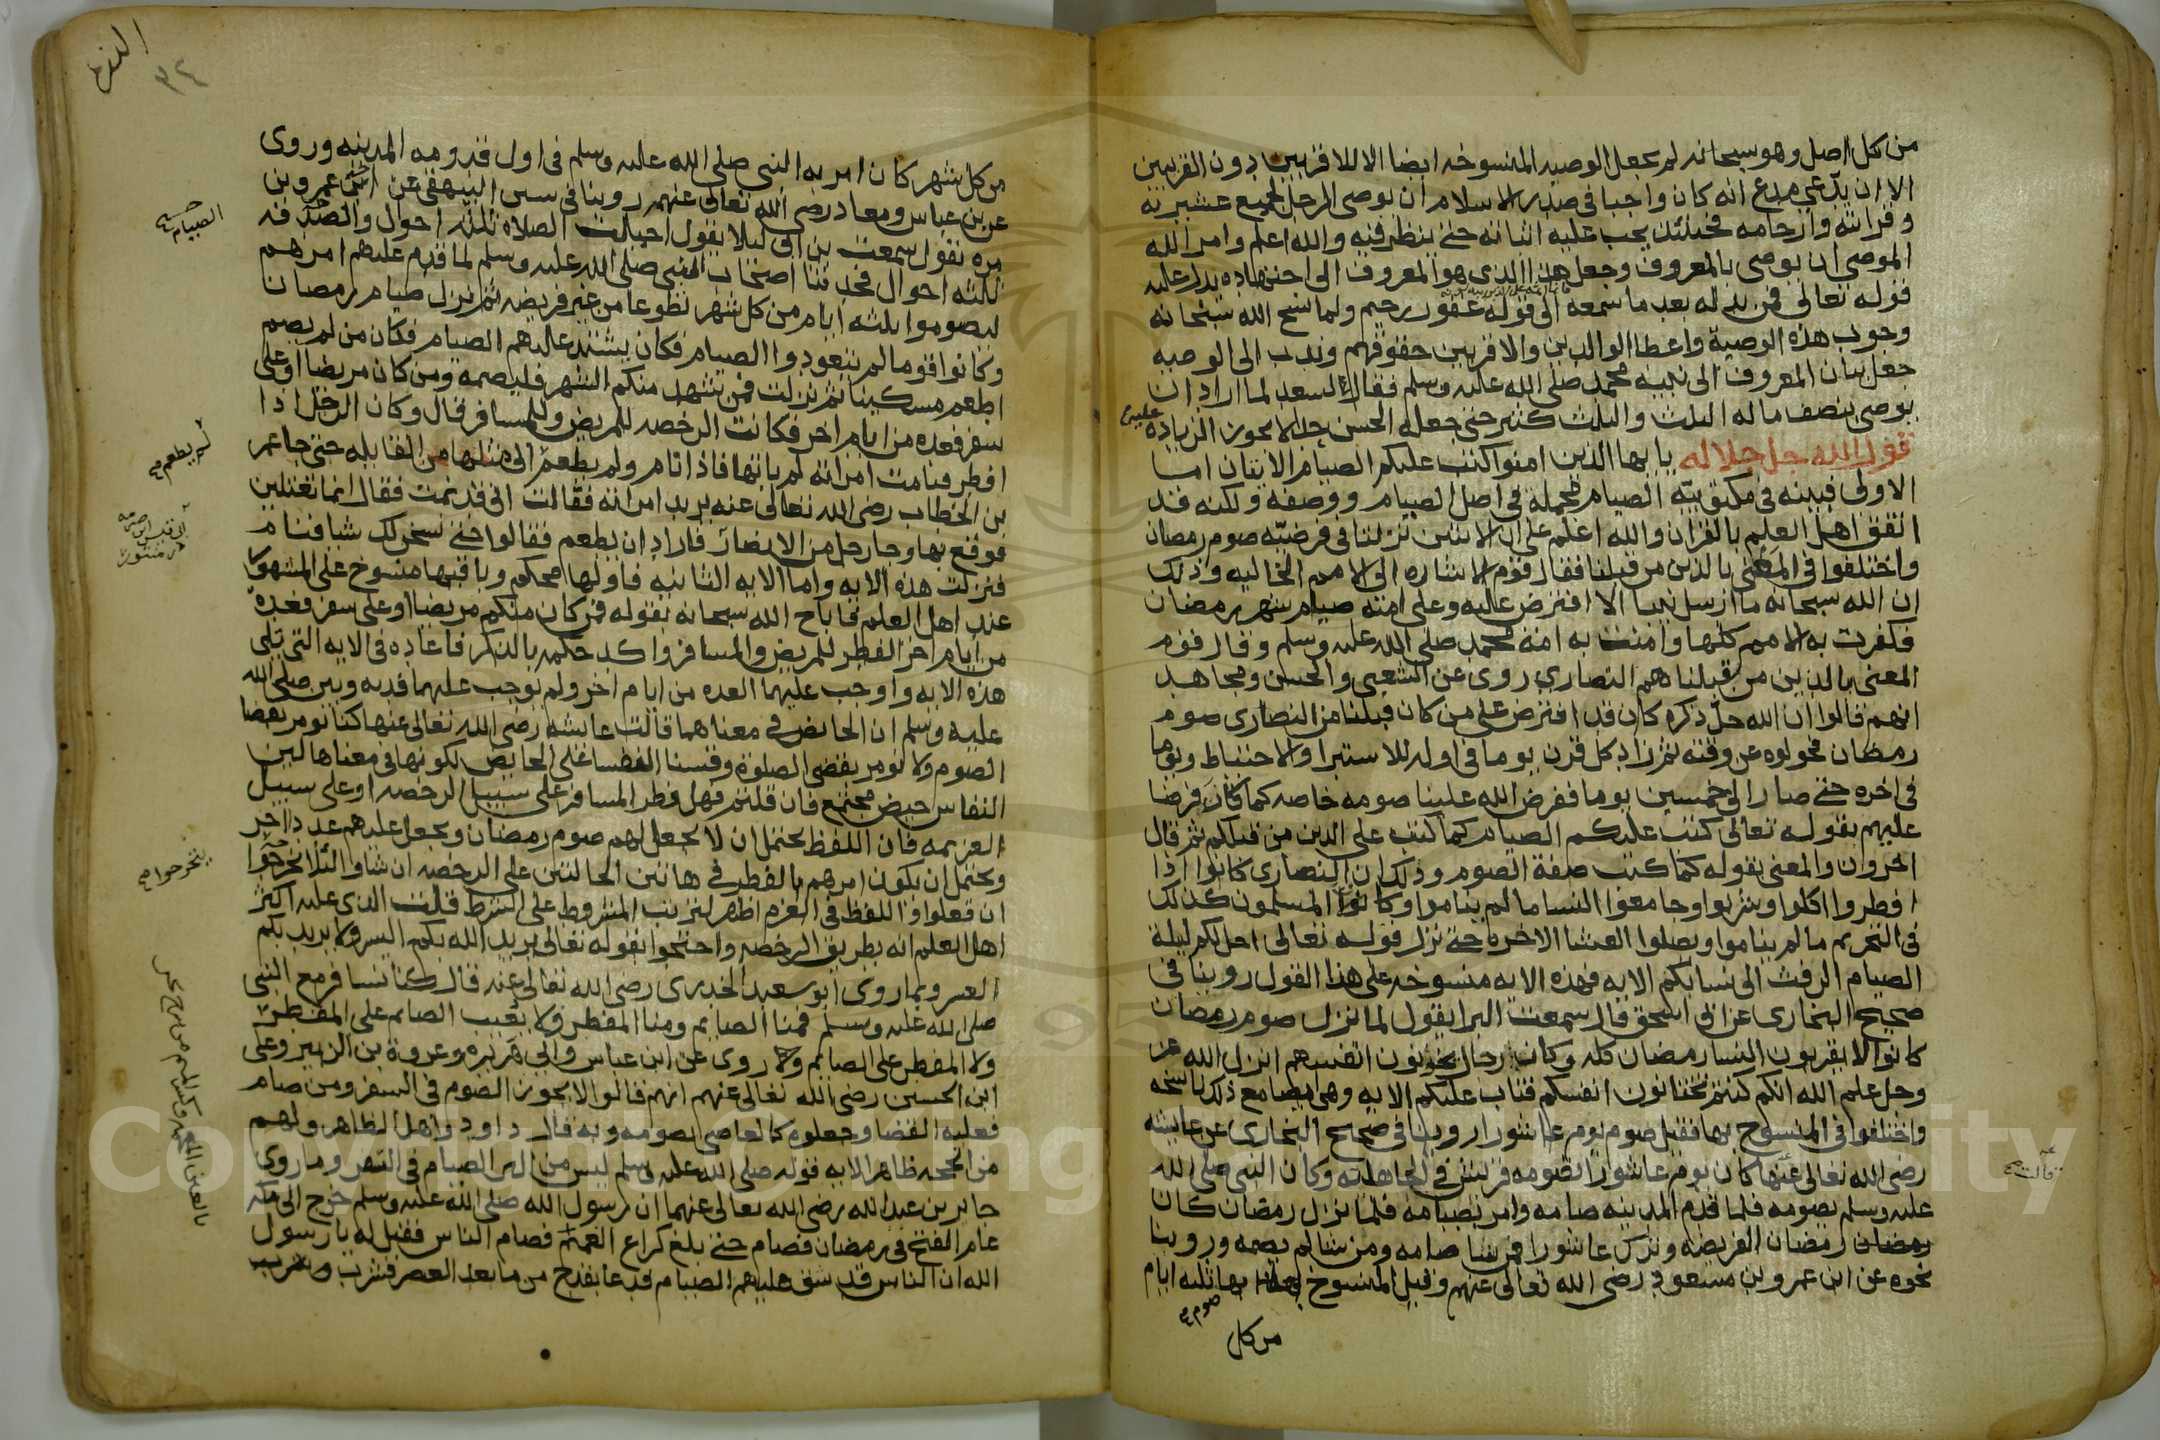 من كل اصل وهو سبحانه لم يجعل الوصيه المنسوخه ايضا الا للاقربين دون القريبين
الا ان يدعي مدع انه كان واجبا في صدر الاسلام ان يوصي الرجل لجميع عشيرته
وقرابته وارحامه فحينئذ يجب عليه اثباته حتى ينظر فيه والله اعلم وامر الله
الموصي ان يوصي بالمعروف وجعل هذا الذي هو المعروف الى
قوله تعالى فمن بدله بعد ما سمعه الى قوله غفور رحيم ولما نسخ الله سبحانه
وجوب هذه الوصية واعطا الوالدين والاقربين حقوقهم وندب الى الوصيه
جعل بيان المعروف الى نبيه محمد صلى الله عليه وسلم فقال لسعد لما اراد ان
يوصي بنصف ماله الثلث والثلث كثير حتى جعله الحسن حدا لا يجوز الزياده عليه
قول الله جل جلاله يايها الذين امنوا كتب عليكم الصيام الايتان اما
الاولى فبينه في مكتوبيّة الصيام مجملة في اصل الصيام ووصفه ولكنه قد
اتفق اهل العلم بالقران والله اعلم على ان الاثنتين نزلتا في فرضيّة صوم رمضان
واختلفوا في المعني بالذين من قبلنا فقال قوم الاشاره الى الامم الخاليه وذلك
ان الله سبحانه ما ارسل نبيا الا افترض عليه وعلى امته صيام شهر رمضان
فكفرت به الامم كلها وامنت به امة محمد صلى الله عليه وسلم وقال قوم
المعني بالذين من قبلنا هم النصارى روى عن الشعبي والحسن ومجاهد
انهم قالوا ان الله جل ذكره كان قد افترض على من كان قبلنا من النصارى صوم
رمضان فحولوه عن وقته ثم زاد كل قرن يوما في اوله للاستبرا والاحتياط ويوما
في اخره حتى صار الى خمسين يوما ففرض الله علينا صومه خاصه كما كان فرضا
عليهم بقوله تعالى كتب عليكم الصيام كما كتب على الذين من قبلكم ثم قال
اخرون والمعني بقوله كما كتب صفة الصوم وذلك ان النصارى كانوا اذا
افطروا اكلوا وشربوا وجامعوا النسا ما لم يناموا وكانوا المسلمون كذلك
في التحريم ما لم يناموا ويصلوا العشا الاخره حتى نزل قوله تعالى احل لكم ليلة
الصيام الرفث الى نسائكم الايه فهذه الايه منسوخه على هذا القول روينا في
صحيح البخاري عن ابي اسحق قال سمعت البرا يقول لما نزل صوم رمضان
كانوا لا يقربون النسا رمضان كله وكان رجال يخونون انفسهم انزل الله عز
وجل علم الله انكم كنتم تختانون انفسكم فتاب عليكم الايه وهي ايضا مع ذلك ناسخه
واختلفوا في المنسوخ بها فقيل صوم يوم عاشورا روينا في صحيح البخاري عن عايشه
رضى الله تعالى عنها كان يوم عاشورا تصومه قريش في الجاهلية وكان النبي صلى الله
عليه وسلم يصومه فلما قدم المدينه صامه وامر بصيامه فلما نزل رمضان كان
رمضان الفريضه وترك عاشورا فمن شا صامه ومن شا لم يصمه وروينا
نحوه عن ابن عمر وبن مسعود رضى الله تعالى عنهم وقيل المنسوخ بها ثلثه ايام
صوم
من كل
قالت
٣٤
من كل شهر كان امر به النبي صلى الله عليه وسلم في اول قدومه المدينه وروى
عن بن عباس ومعاذ رضى الله تعالى عنهم روينا في سنن البيهقي عن عمرو بن
مره يقول سمعت بن ابي ليلا يقول احيلت الصلاة ثلثة احوال والصدقه
ثلثه احوال فحدثنا اصحاب النبي صلى الله عليه وسلم لما قدم عليهم امرهم
ليصوموا ثلثه ايام من كل شهر تطوعا من غير فريضه ثم نزل صيام رمضان
وكانوا قوما لم يتعودوا الصيام فكان يشتد عليهم الصيام فكان من لم يصم
اطعم مسكينا ثم نزلت فمن شهد منكم الشهر فليصمه ومن كان مريضا او على
سفر فعده من ايام اخر فكانت الرخصه للمريض وللمسافر قال وكان الرجل اذا
افطر فنامت امراته لم ياتها فاذا نام ولم يطعم الى مثلها من القابله حتى جا عمر
بن الخطاب رضى الله تعالى عنه يريد امراته فقالت اني قد نمت فقال انما تعتلين
فوقع بها وجا رجل من الانصار فاراد ان يطعم فقالوا حتى نسخن لك شيا فنام
فنزلت هذه الايه واما الايه الثانيه فاولها محكم وباقيها منسوخ على المشهور
عند اهل العلم فاباح الله سبحانه بقوله فمن كان منكم مريضا او على سفر فعدة
من ايام اخر الفطر للمريض والمسافر واكد حكمه بالذكر فاعاده في الايه التي تلي
هذه الايه واوجب عليهما العده من ايام اخر ولم يوجب عليهما فديه وبين صلى الله
عليه وسلم ان الحايض في معناهما قالت عايشه رضى الله تعالى عنها كنا نومر بقضا
الصوم ولا نومر بقضى الصلوة وقسنا النفسا على الحايض لكونها في معناها لان
النفاس حيض مجتمع فان قلتم فهل فطر المسافر على سبيل الرخصه او على سبيل
العزيمه فان اللفظ يحتمل ان لا يجعل لهم صوم رمضان ويجعل عليهم عددا اخر
ويحتمل ان يكون امرهم بالفطر في هاتين الحالتين على الرخصه ان شاوا لئلا يحرجوا
ان فعلوا واللفظ في العزم اظهر لترتيب المشروط على الشرط قلت الذي عليه اكثر
اهل العلم انه بطريق الرخصه واحتجوا بقوله تعالى يريد الله بكم اليسر ولا يريد بكم
العسر وبما روى ابو سعيد الخدري رضى الله تعالى عنه قال كنا نسافر مع النبي
صلى الله عليه وسلم فمنا الصايم ومنا المفطر ولا يعيب الصايم على المفطر
ولا المفطر على الصايم وروى عن ابن عباس وابي هريره وعروة بن الزبير وعلى
ابن الحسين رضى الله تعالى عنهم انهم قالوا لا يجوز الصوم في السفر ومن صام
فعليه القضا وجعلوه كالعاصي بصومه وبه قال داود واهل الظاهر ولهم
من الحجه ظاهر الايه قوله صلى الله عليه وسلم ليس من البر الصيام في السفر وما روى
جابر بن عبد الله رضى الله تعالى عنهما ان رسول الله صلى الله عليه وسلم خرج الى مكه
عام الفتح في رمضان فصام حتى بلغ كراع الغميم فصام الناس فقيل له يا رسول
الله ان الناس قد شق عليهم الصيام فدعا بقدح من ما بعد العصر فشرب
الصيام
لم يطعم
يتحرجوا
Copyright © King Saud University